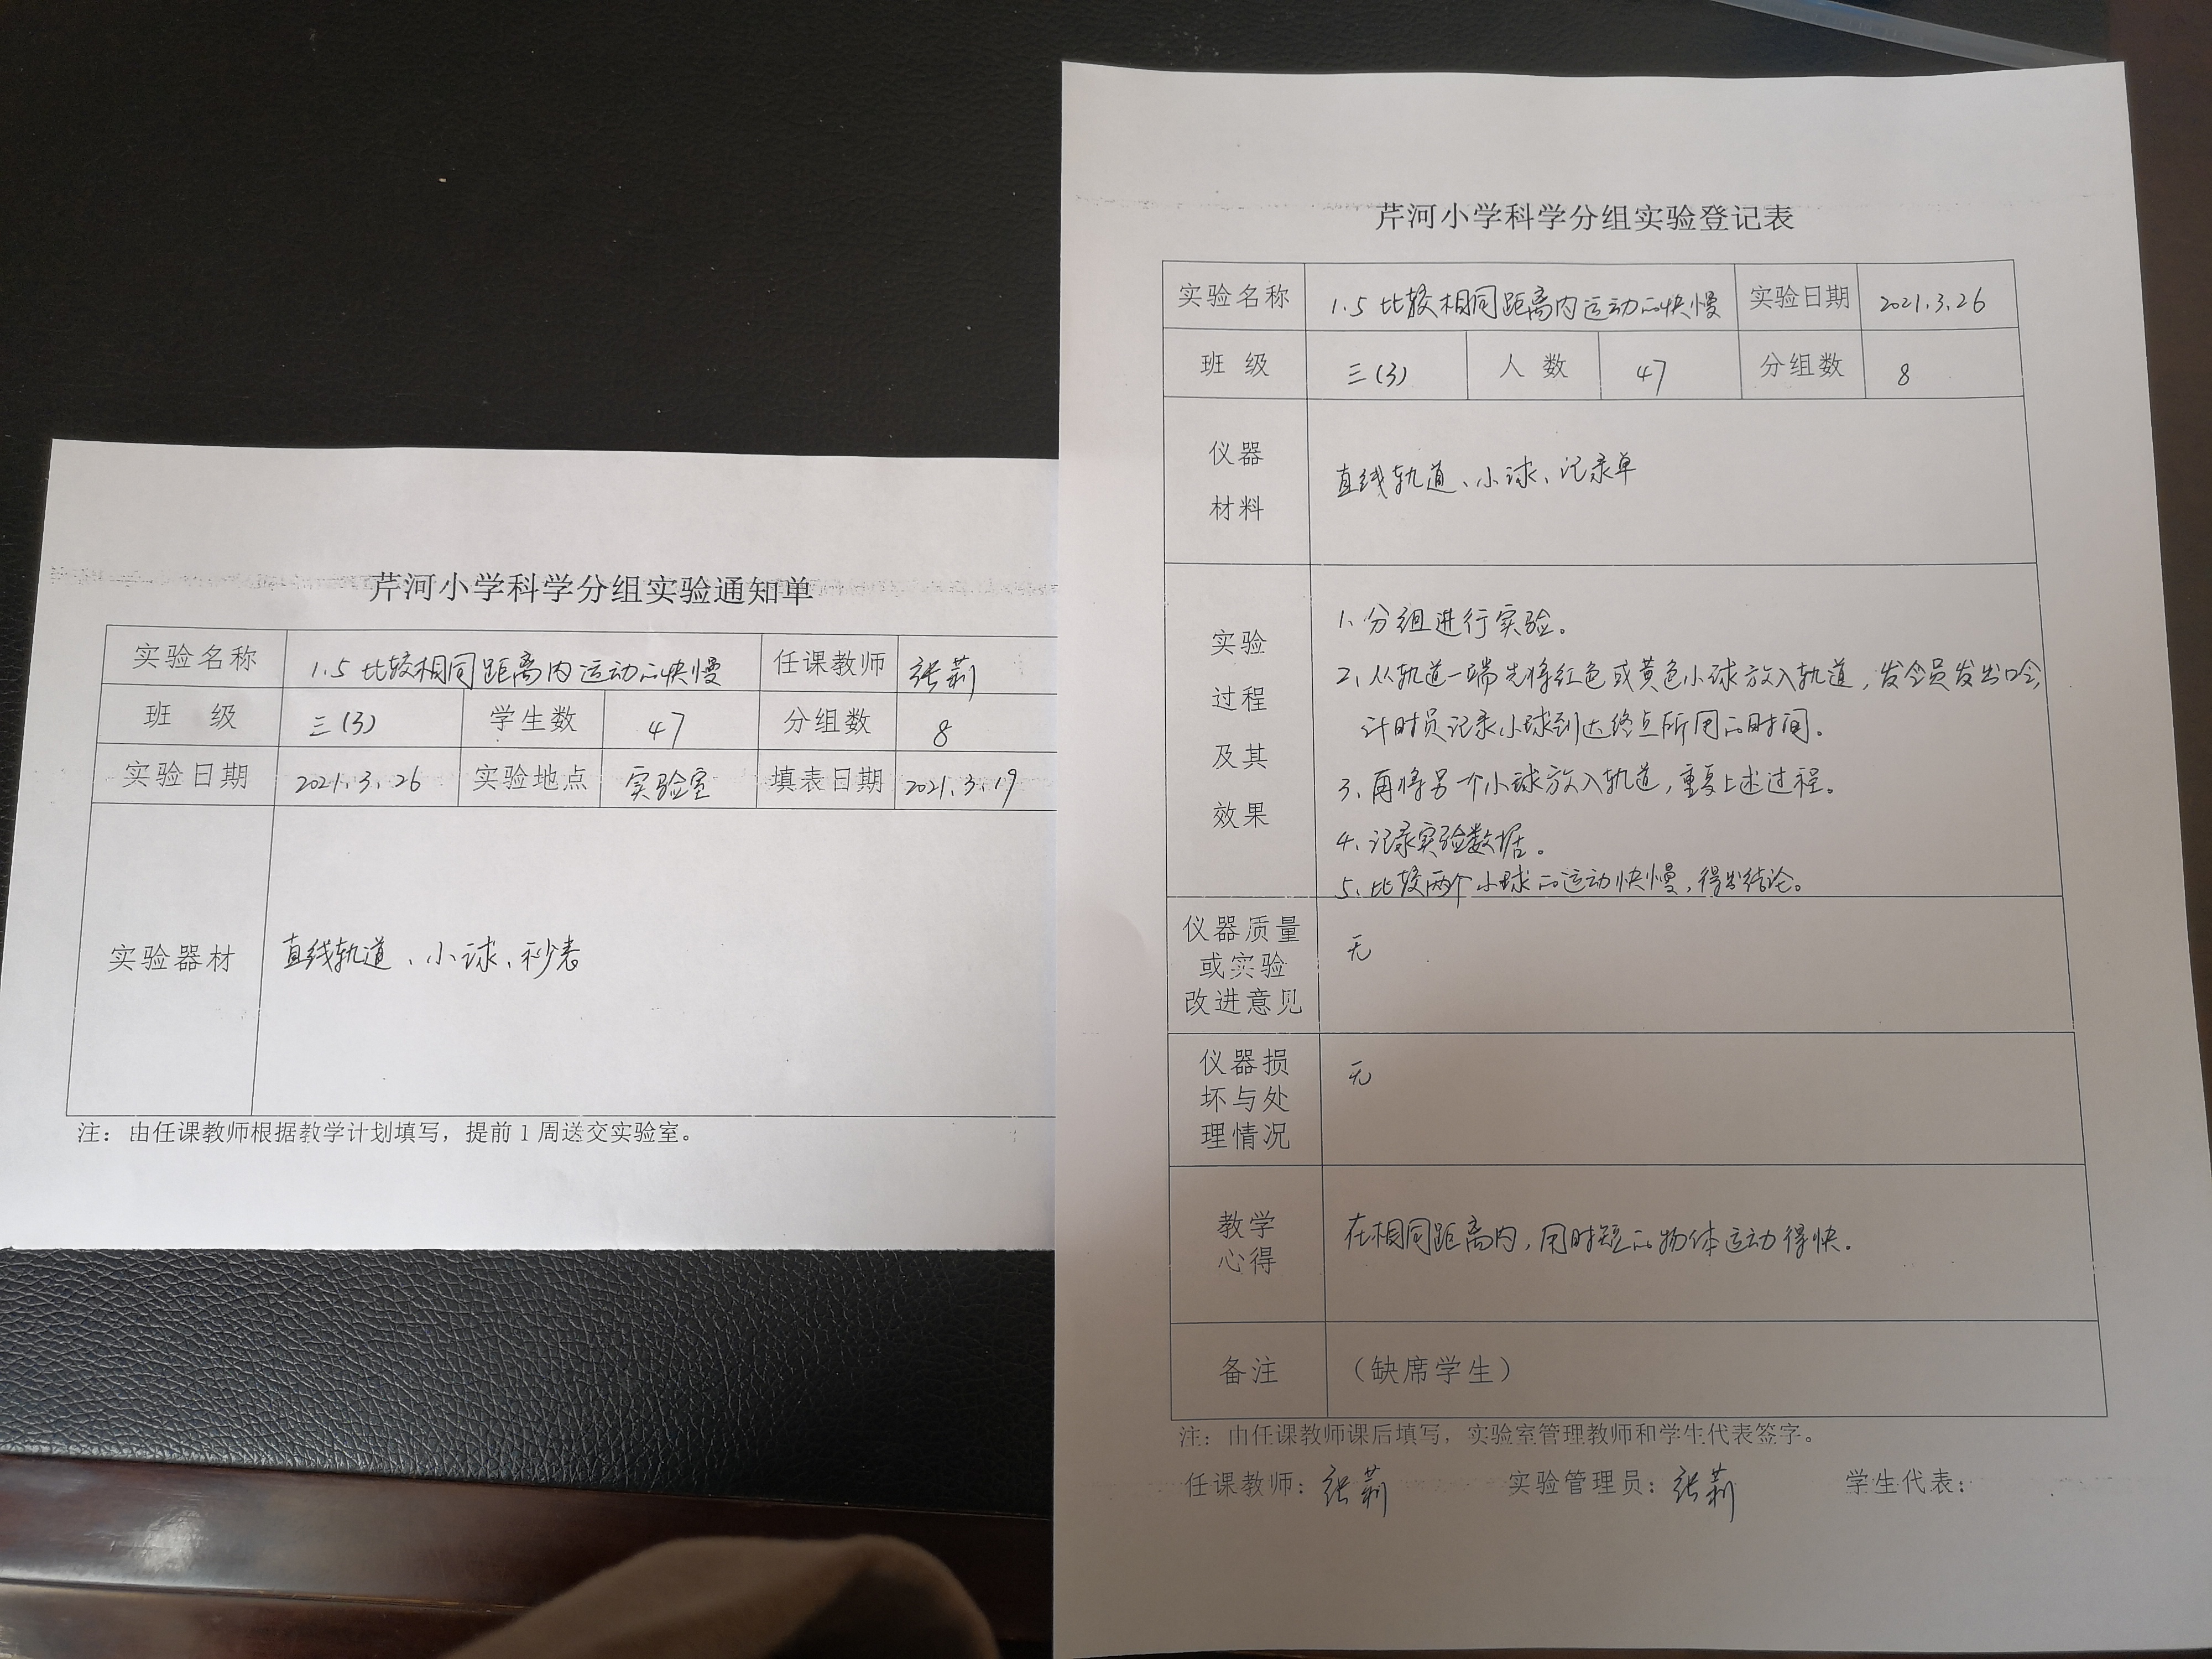 芹河小学科学分组实验通知单
实验名称 1.5 比较相同距离内运动的快慢 任课教师 张莉
班 级 三(3) 学生数 47 分组数 8
实验日期 2021.3.26 实验地点 实验室 填表日期 2021.3.19
实验器材 直线轨道、小球、秒表
注：由任课教师根据教学计划填写，提前1周送交实验室。
芹河小学科学分组实验登记表
实验名称 1.5 比较相同距离内运动的快慢 实验日期 2021.3.26
班 级 三(3) 人 数 47 分组数 8
仪器
材料
直线轨道、小球、记录单
实验
过程
及其
效果
1、分组进行实验。
2、从轨道一端先将红色或黄色小球放入轨道，发令员发出口令，
计时员记录小球到达终点所用的时间。
3、再将另一个小球放入轨道，重复上述过程。
4、记录实验数据。
5、比较两个小球的运动快慢，得出结论。
仪器质量
或实验
改进意见
无
仪器损
坏与处
理情况
无
教学
心得
在相同距离内，用时短的物体运动得快。
备注 （缺席学生）
注：由任课教师课后填写，实验室管理教师和学生代表签字。
任课教师：张莉 实验管理员：张莉 学生代表：